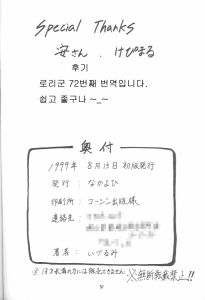 Special Thanks
安さん . けぴまる
후기
로리군 72번째 번역입니다.
쉽고 좋구나 ~_~
奥付
1999年 8月15日 初版発行
発行 : なかよひ
印刷所 : コーシン出版 様
連絡先 :
著者 : いづるみ
※無断転載禁止!!